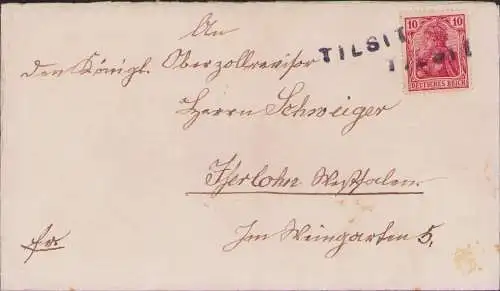 An
TILSIT
TILSIT
10 10
DEUTSCHES REICH
den Königl. Oberzollrevisor
Herrn Schweiger
Iserlohn Westfalen
Im Weingarten 5.
fr